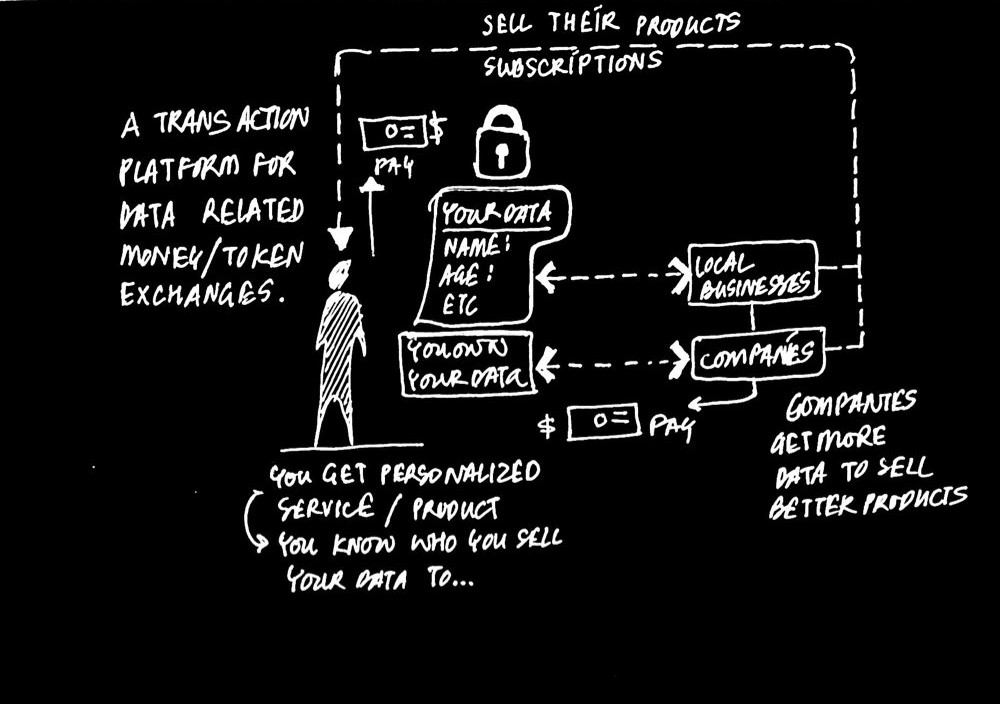 SELL THEIR PRODUCTS
SUBSCRIPTIONS
A TRANSACTION
PLATFORM FOR
DATA RELATED
MONEY/TOKEN
EXCHANGES.
0= $
PAY
YOUR DATA
NAME:
AGE:
ETC
YOU OWN
YOUR DATA
LOCAL
BUSINESSES
COMPANIES
$ 0= PAY
COMPANIES
GET MORE
DATA TO SELL
BETTER PRODUCTS
YOU GET PERSONALIZED
SERVICE / PRODUCT
YOU KNOW WHO YOU SELL
YOUR DATA TO...